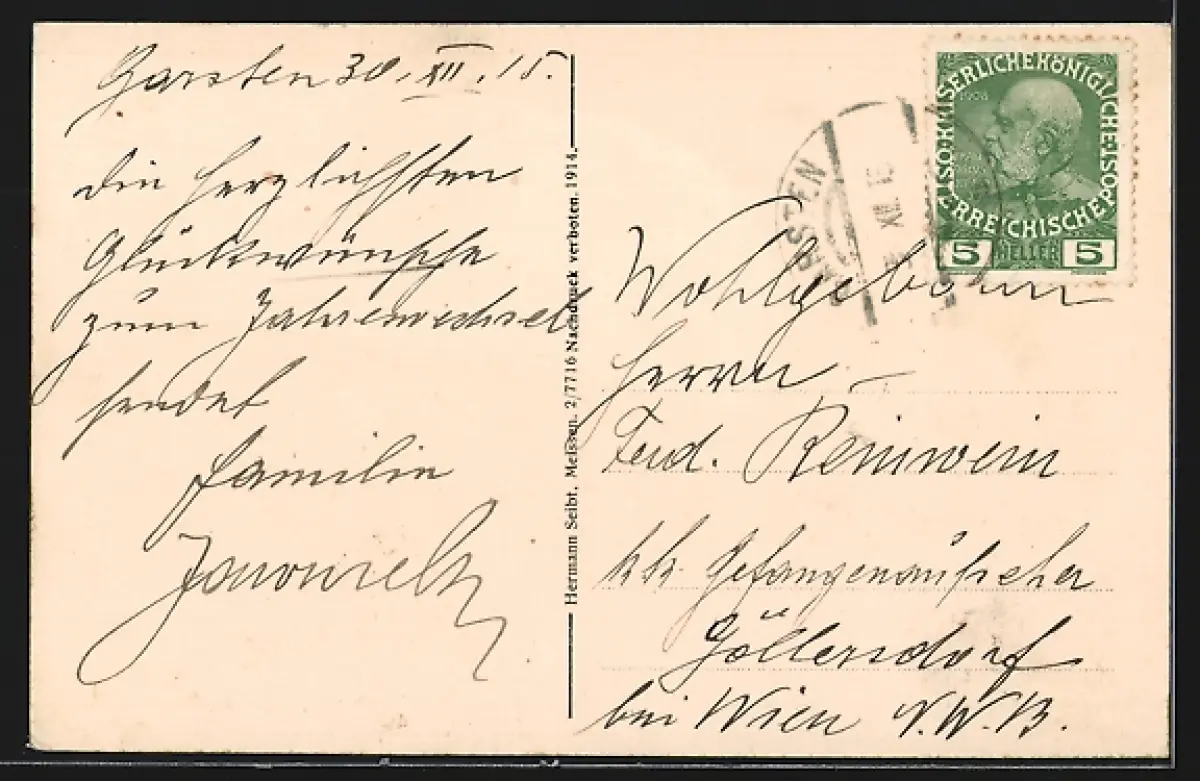 Garsten 30. XII. 15.
Die herzlichsten
Glückwünsche
zum Jahreswechsel
sendet
Familie
Hermann Seibt, Meissen. 2/7716 Nachdruck verboten. 1914.
KAISERLICHE KÖNIGLICHE ÖSTERREICHISCHE POST
1908
5 HELLER 5
GARSTEN
XII
Wohlgeboren
Herrn
Ferd. Reinwein
kk. Gefangenaufseher
Göllersdorf
bei Wien N.W.B.